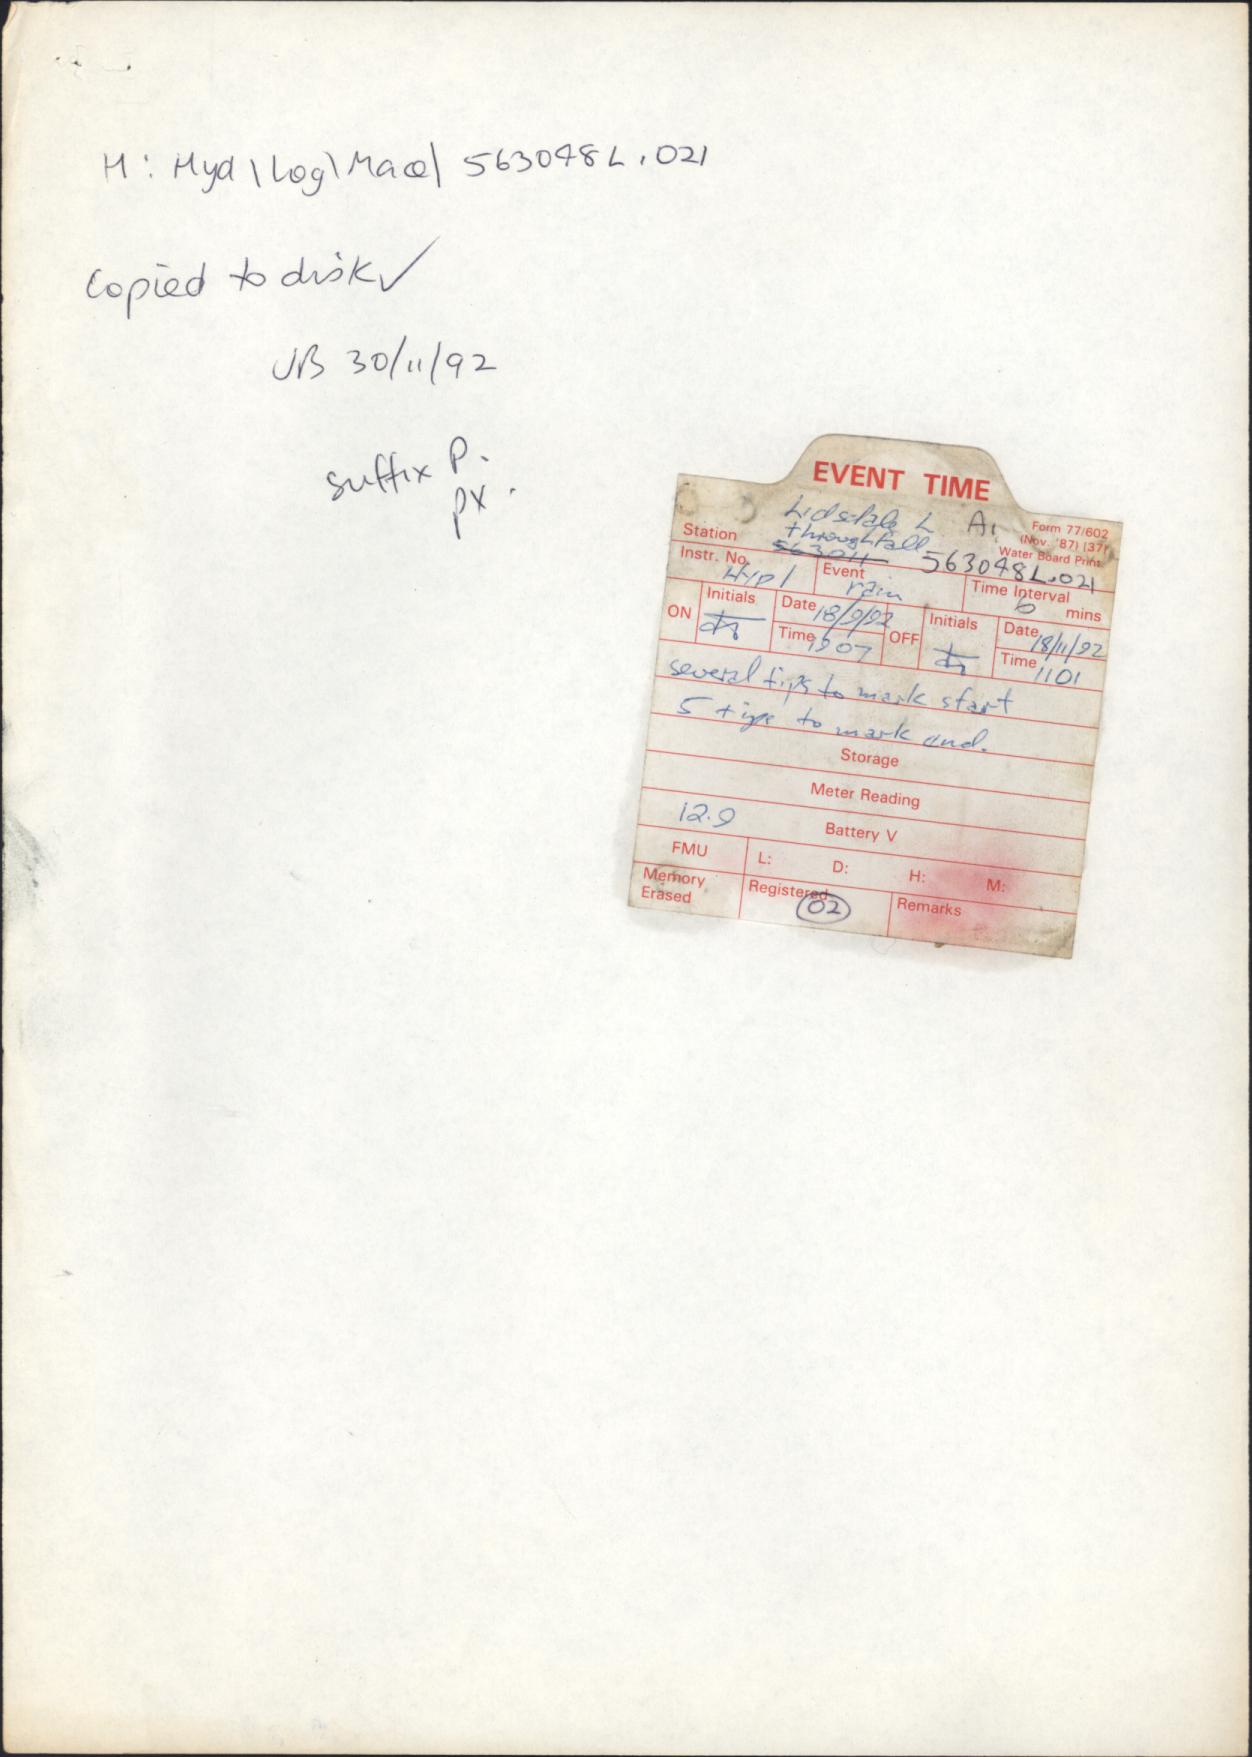 H: Hyd\Log\Mace\ 563048L.021
Copied to disk✓
JB 30/11/92
suffix P.
px.
EVENT TIME
Lidsdale L A1
throughfall
Station 563011 563048L.021
Form 77/602
(Nov. '87) (37)
Water Board Print.
Instr. No. Hyp 1 Event rain Time Interval 6 mins
ON Initials Date 18/9/92 OFF Initials Date 18/11/92
Time 1207 Time 1101
several tips to mark start
5 tips to mark end.
Storage
Meter Reading
12.9 Battery V
FMU L: D: H: M:
Memory Erased Registered 02 Remarks